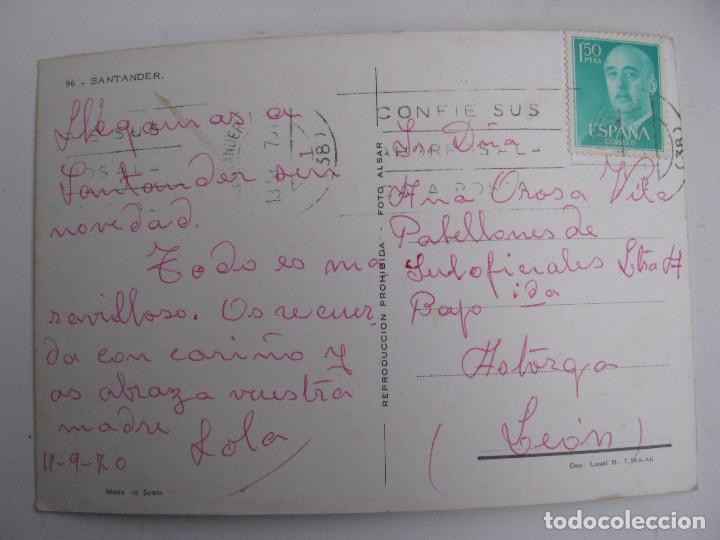 96 - SANTANDER.
Llegamos a
Santander sin
novedad.
Todo es ma
ravilloso. Os recuer-
da con cariño y
os abraza vuestra
madre Lola
11-9-70
Made in Spain
REPRODUCCION PROHIBIDA - FOTO ALSAR
CONFIE SUS
1,50
PTAS
ESPAÑA
CORREOS
Sra Dña
Ana Orosa Vila
Pabellones de
Suboficiales Letra A
Bajo ida
Astorga
(León)
Dep. Legal B.
todocoleccion
todocoleccion.net